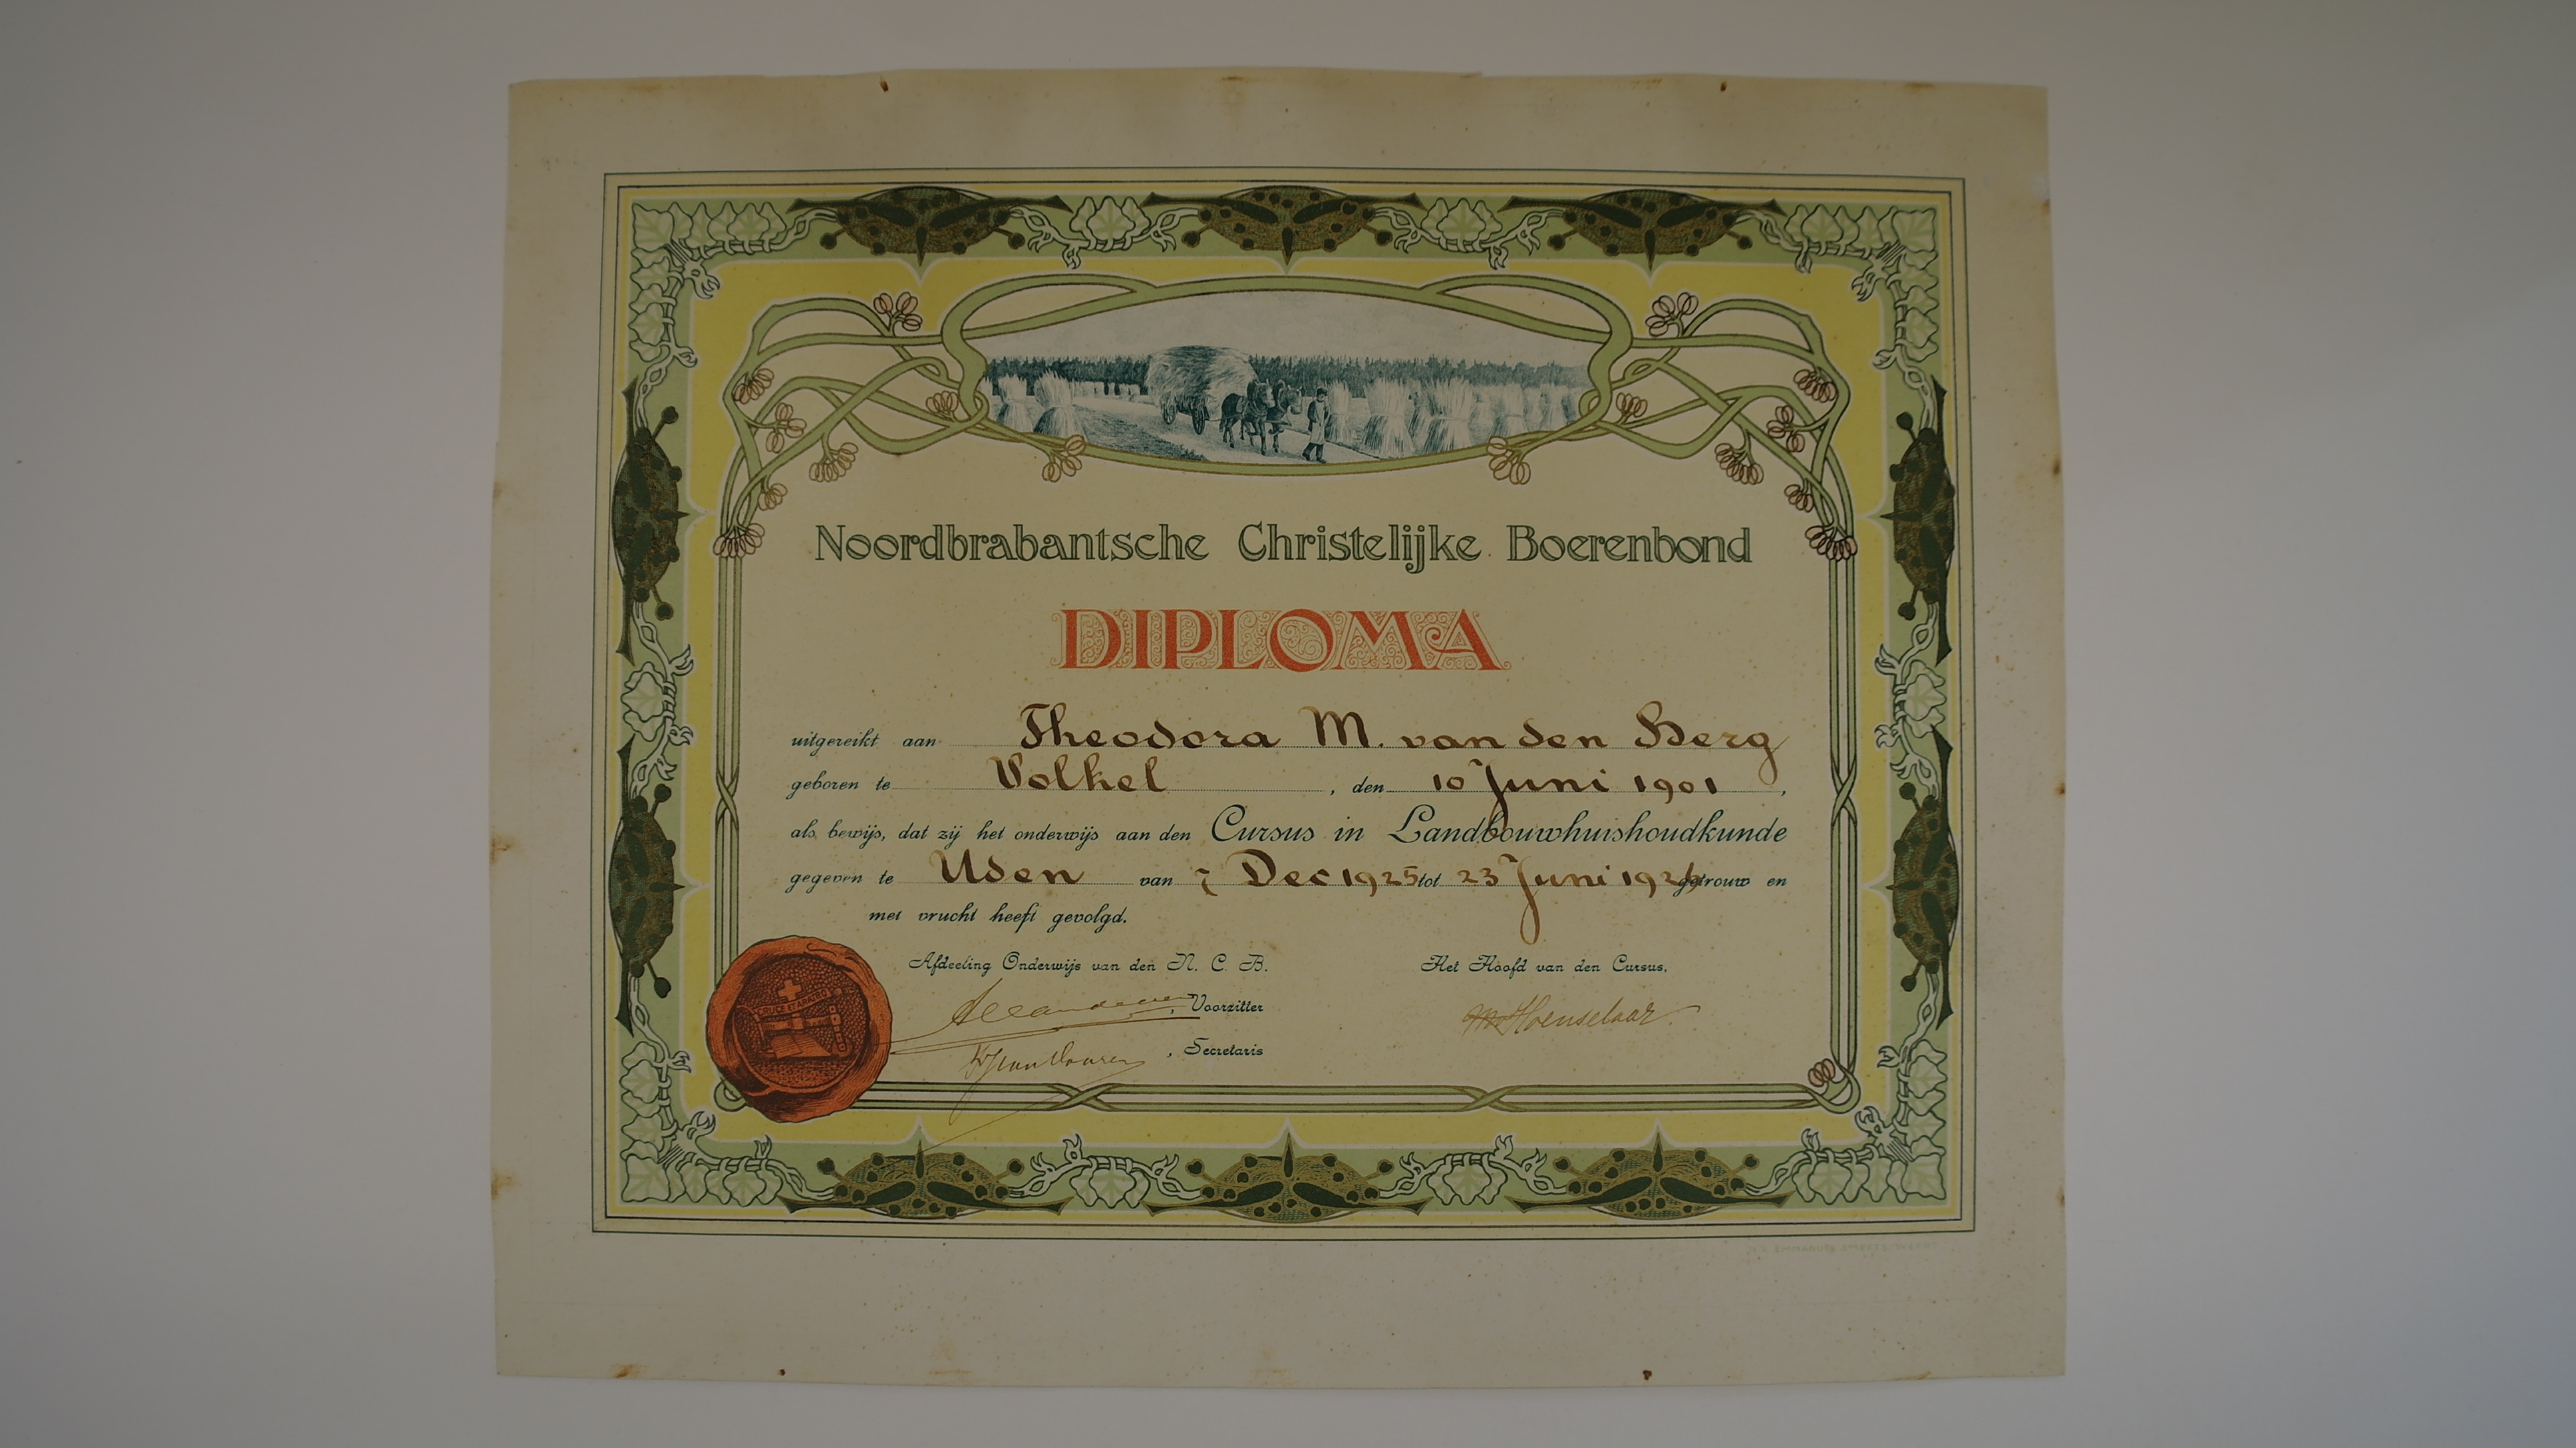 Noordbrabantsche Christelijke Boerenbond
DIPLOMA
uitgereikt aan Theodora M. van den Berg
geboren te Volkel, den 10 Juni 1901,
als bewijs, dat zij het onderwijs aan den Cursus in Landbouwhuishoudkunde
gegeven te Uden van 7 Dec 1925 tot 23 Juni 1926 getrouw en
met vrucht heeft gevolgd.
Afdeeling Onderwijs van den N. C. B.
Het Hoofd van den Cursus,
, Voorzitter
Henselaar
, Secretaris
CRUCE ET ARATRO